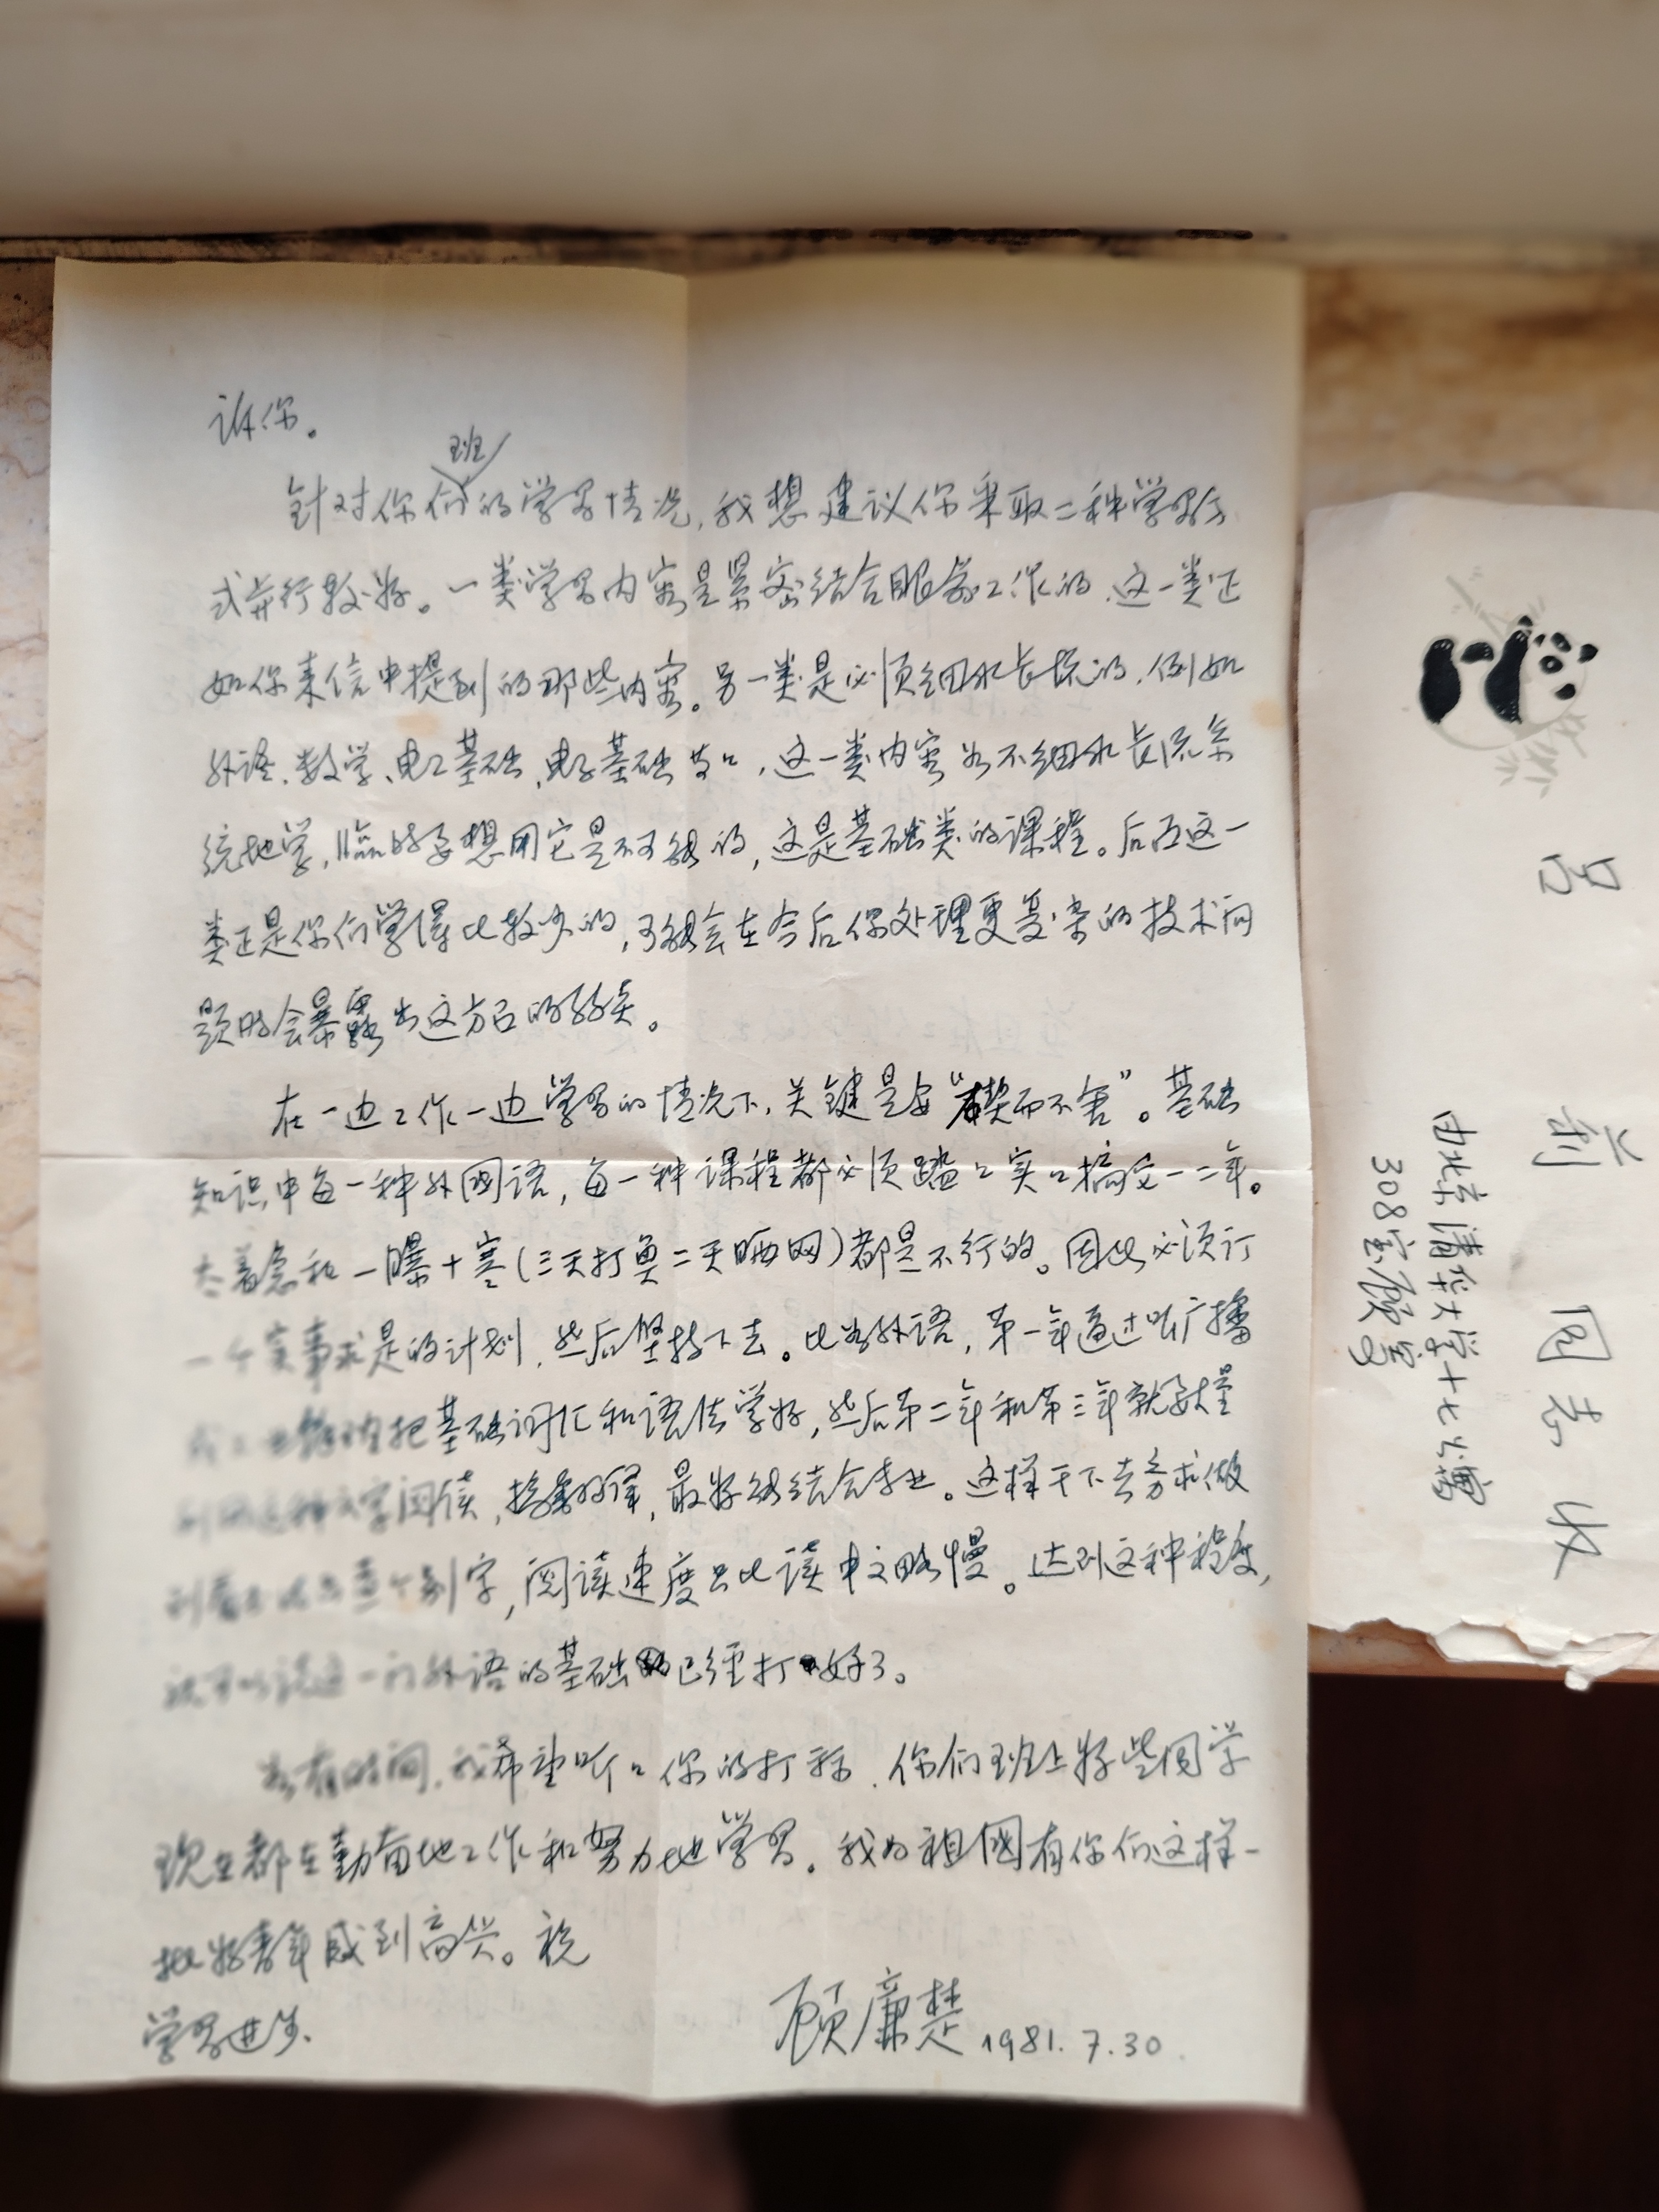 诉你。
班
针对你们的学习情况，我想建议你采取二种学习方
式并行较好。一类学习内容是紧密结合眼前工作的，这一类正
如你来信中提到的那些内容。另一类是必须细水长流的，例如
外语、数学、电工基础、电子基础等等，这一类内容如不细水长流系
统地学，临时要想用它是不可能的，这是基础类的课程。后面这一
类正是你们学得比较少的，可能会在今后你处理更复杂的技术问
题时会暴露出这方面的弱点。
在一边工作一边学习的情况下，关键是要“锲而不舍”。基础
知识中每一种外国语，每一种课程都必须踏踏实实搞它一二年。
太着急和一曝十寒（三天打鱼二天晒网）都是不行的。因此必须订
一个实事求是的计划，然后坚持下去。比如外语，第一年通过听广播
把基础词汇和语法学好，然后第二年和第三年就要大量
阅读，接着翻译，最好能结合专业。这样干下去务求做
到 查个别字，阅读速度只比读中文略慢。达到这种程度，
就可以说这一门外语的基础已经打好了。
如有时间，我希望听听你的打算，你们班上好些同学
现在都在勤奋地工作和努力地学习。我为祖国有你们这样一
批好青年感到高兴。祝
学习进步。
顾廉楚 1981.7.30.
吕 同志 收
由北京清华大学十七公寓
308室顾寄